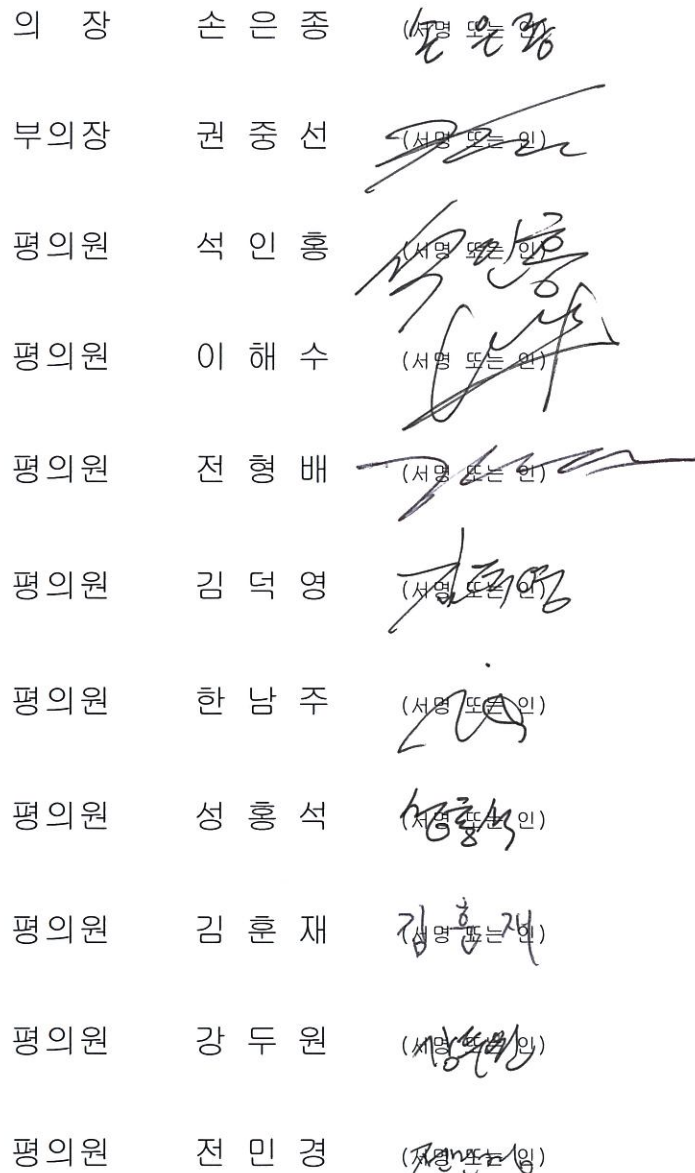 의 장 손 은 종 (서명 또는 인) 손은종
부의장 권 중 선 (서명 또는 인)
평의원 석 인 홍 (서명 또는 인) 석인홍
평의원 이 해 수 (서명 또는 인)
평의원 전 형 배 (서명 또는 인)
평의원 김 덕 영 (서명 또는 인) 김덕영
평의원 한 남 주 (서명 또는 인)
평의원 성 홍 석 (서명 또는 인) 성홍석
평의원 김 훈 재 (서명 또는 인) 김훈재
평의원 강 두 원 (서명 또는 인) 강두원
평의원 전 민 경 (서명 또는 인) 전민경